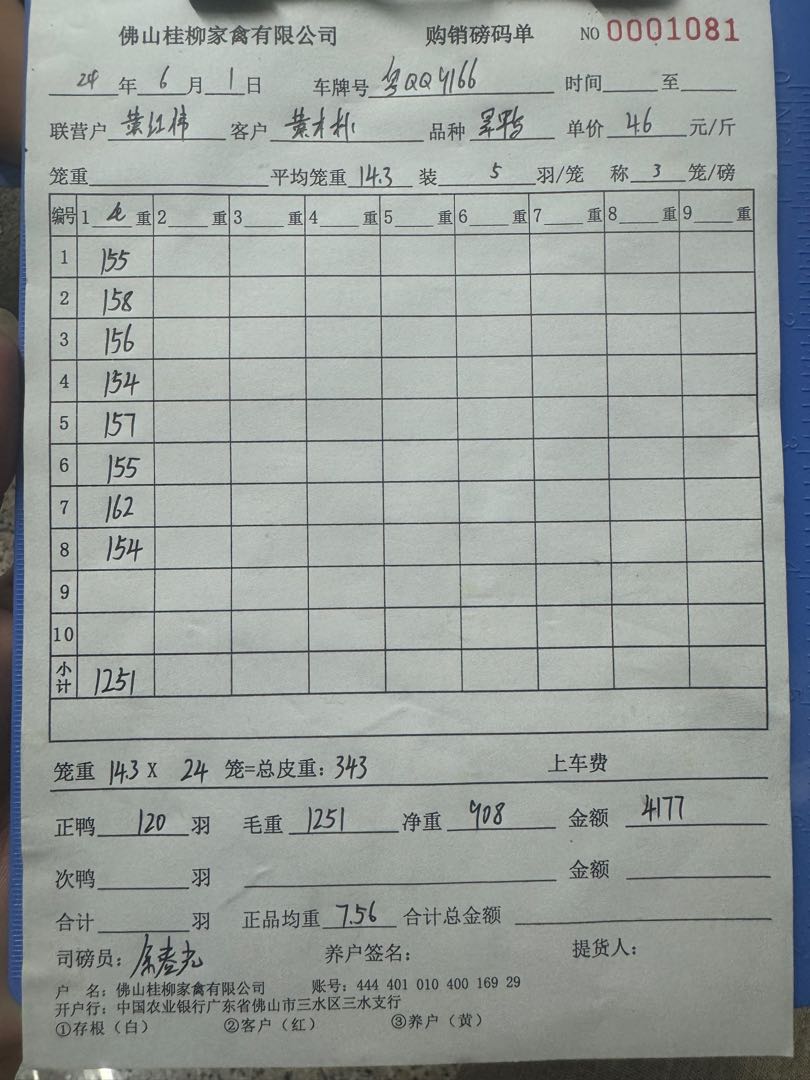 佛山桂柳家禽有限公司 购销磅码单 NO 0001081
24 年 6 月 1 日 车牌号 粤QQY166 时间 至
联营户 黄红伟 客户 黄木 品种 单价 4.6 元/斤
笼重 平均笼重 14.3 装 5 羽/笼 称 3 笼/磅
编号 1 重 2 重 3 重 4 重 5 重 6 重 7 重 8 重 9 重
1 155
2 158
3 156
4 154
5 157
6 155
7 162
8 154
9
10
小计 1251
笼重 14.3 X 24 笼=总皮重: 343 上车费
正鸭 120 羽 毛重 1251 净重 908 金额 4177
次鸭 羽 金额
合计 羽 正品均重 7.56 合计总金额
司磅员: 养户签名: 提货人:
户 名: 佛山桂柳家禽有限公司 账号: 444 401 010 400 169 29
开户行: 中国农业银行广东省佛山市三水区三水支行
①存根（白） ②客户（红） ③养户（黄）